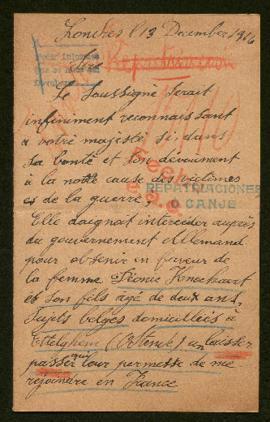 Londres le 13 Decembre 1916
Sire
Le Soussigné serait
infiniment reconnaissant
à votre majesté si, dans
sa bonté et son dévouement
à la noble cause des victimes
de la guerre,
REPATRIACIONES
O CANJE
Elle daignait intercéder auprès
du gouvernement Allemand
pour obtenir en faveur de
la femme Léonie
et son fils agé de deux ans,
Sujets belges domiciliés à
(Ostende) un laisser
passer qui leur permette de me
rejoindre en France